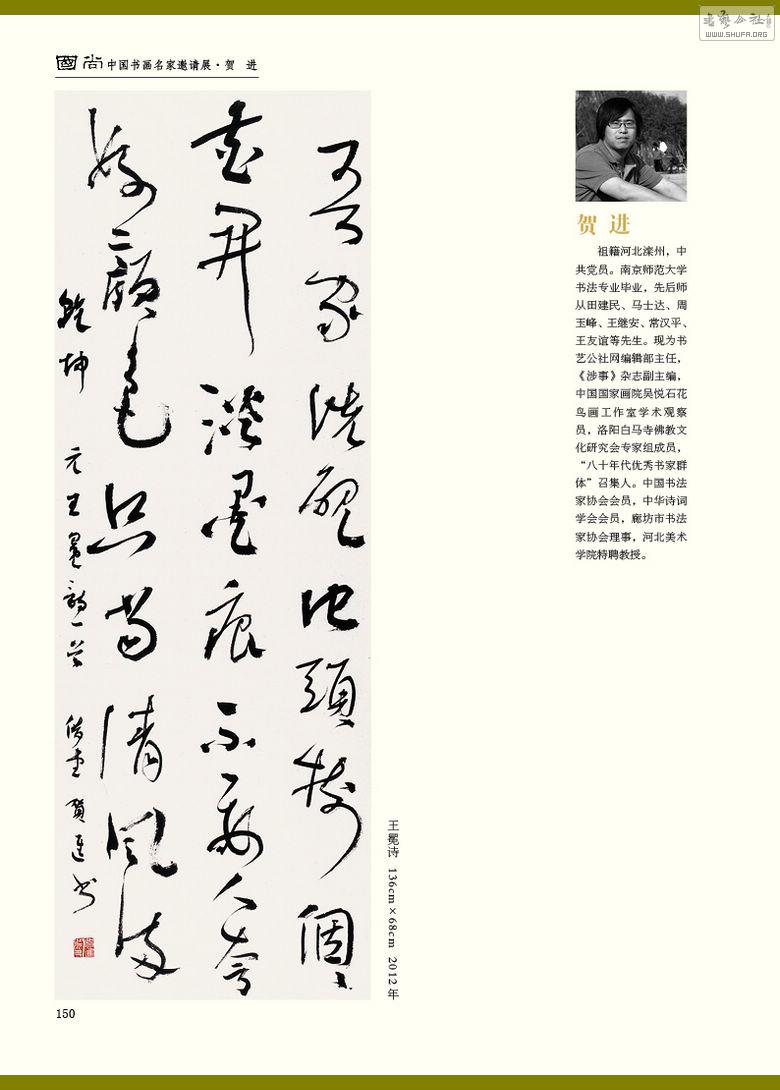 書藝公社
WWW.SHUFA.ORG
國尚 中国书画名家邀请展·贺 进
吾家洗硯池頭樹個〻
花開澹墨痕不要人夸
好顏色只留清風滿
乾坤 元王冕詩一首 賀進书
王冕诗 136cm×68cm 2012年
贺 进
祖籍河北滦州，中
共党员。南京师范大学
书法专业毕业，先后师
从田建民、马士达、周
玉峰、王继安、常汉平、
王友谊等先生。现为书
艺公社网编辑部主任，
《涉事》杂志副主编，
中国国家画院吴悦石花
鸟画工作室学术观察
员，洛阳白马寺佛教文
化研究会专家组成员，
“八十年代优秀书家群
体”召集人。中国书法
家协会会员，中华诗词
学会会员，廊坊市书法
家协会理事，河北美术
学院特聘教授。
150